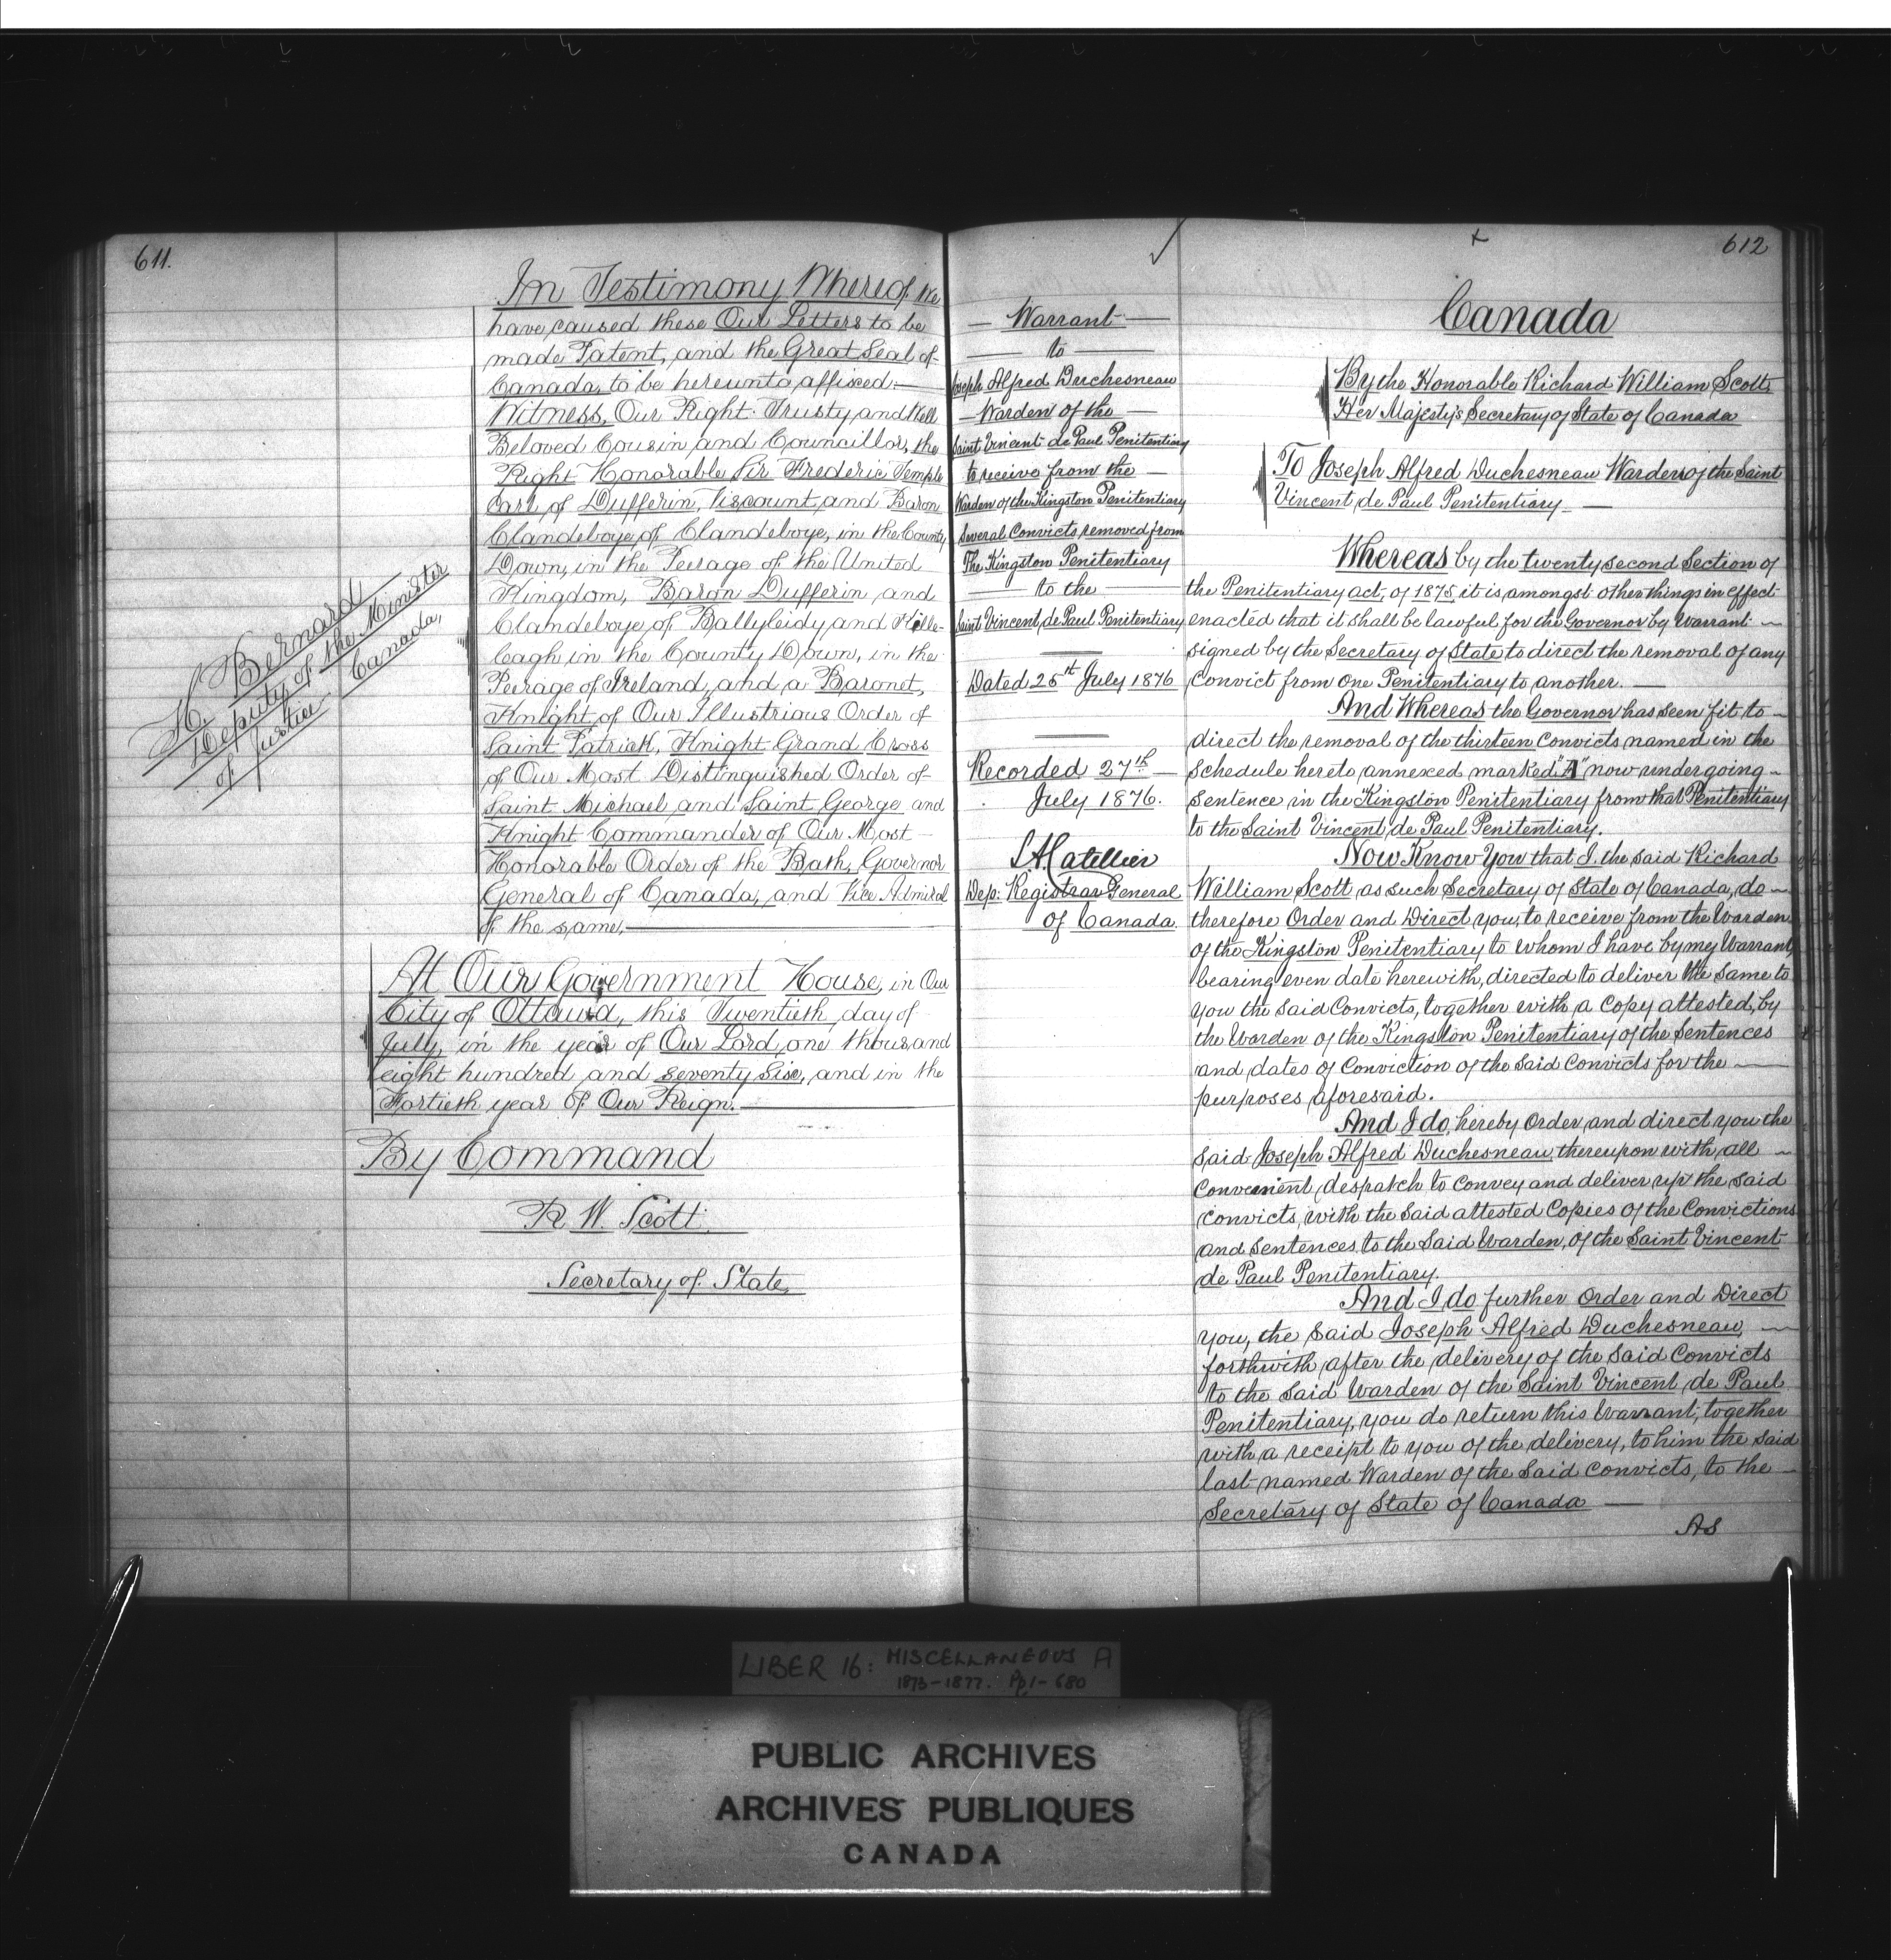 611.
In Testimony Whereof We
have caused these Our Letters to be
made Patent, and the Great Seal of
Canada, to be hereunto affixed:
Witness, Our Right Trusty and Well
Beloved Cousin and Councillor, the
Right Honorable Sir Frederic Temple
Earl of Dufferin, Viscount and Baron
Clandeboye of Clandeboye, in the County
Down, in the Peerage of the United
Kingdom, Baron Dufferin and
Clandeboye of Ballyleidy and Kille-
leagh in the County Down, in the
Peerage of Ireland, and a Baronet,
Knight of Our Illustrious Order of
Saint Patrick, Knight Grand Cross
of Our Most Distinguished Order of
Saint Michael and Saint George and
Knight Commander of Our Most
Honorable Order of the Bath, Governor
General of Canada, and Vice Admiral
of the same.
H. Bernard
Deputy of the Minister
of Justice Canada,
At Our Government House, in Our
City of Ottawa, this Twentieth day of
July, in the year of Our Lord, one thousand
eight hundred and seventy six, and in the
Fortieth year of Our Reign.
By Command
R. W. Scott.
Secretary of State,
612
Warrant
to
Joseph Alfred Duchesneau
Warden of the
Saint Vincent de Paul Penitentiary
to receive from the
Warden of the Kingston Penitentiary
Several Convicts removed from
The Kingston Penitentiary
to the
Saint Vincent de Paul Penitentiary
Dated 25th July 1876
Recorded 27th
July 1876.
Dep: Registrar General
of Canada.
Canada
By the Honorable Richard William Scott,
Her Majesty's Secretary of State of Canada
To Joseph Alfred Duchesneau Warden of the Saint
Vincent de Paul Penitentiary
Whereas by the twenty second Section of
the Penitentiary act, of 1875, it is amongst other things in effect
enacted that it shall be lawful for the Governor by Warrant
signed by the Secretary of State to direct the removal of any
Convict from one Penitentiary to another.
And Whereas the Governor has seen fit to
direct the removal of the thirteen Convicts named in the
Schedule hereto annexed marked "A" now undergoing
Sentence in the Kingston Penitentiary from that Penitentiary
to the Saint Vincent de Paul Penitentiary.
Now Know You that I the said Richard
William Scott as such Secretary of State of Canada, do
therefore Order and Direct you, to receive from the Warden
of the Kingston Penitentiary to whom I have by my Warrant,
bearing even date herewith, directed to deliver the same to
you the said Convicts, together with a Copy attested, by
the Warden of the Kingston Penitentiary of the Sentences
and dates of Conviction of the said Convicts for the
purposes aforesaid.
And I do, hereby Order, and direct you the
said Joseph Alfred Duchesneau, thereupon with all
Convenient despatch to Convey and deliver up the said
convicts, with the said attested Copies of the Convictions
and Sentences, to the Said Warden, of the Saint Vincent
de Paul Penitentiary.
And I do further Order and Direct
you, the Said Joseph Alfred Duchesneau,
forthwith after the delivery of the Said Convicts
to the Said Warden of the Saint Vincent de Paul
Penitentiary, you do return this Warrant, together
with a receipt to you of the delivery, to him the said
last named Warden of the Said Convicts, to the
Secretary of State of Canada
As
LIBER 16: MISCELLANEOUS A
1873-1877. Pp 1-680
PUBLIC ARCHIVES
ARCHIVES PUBLIQUES
CANADA